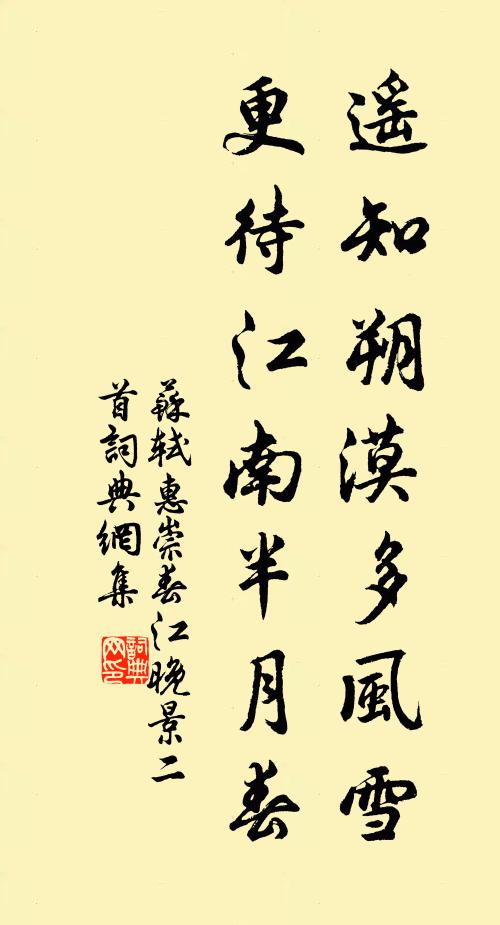 遥知朔漠多風雪
更待江南半月春
蘇軾惠崇春江晚景二
首詞典網集
詞典
网印